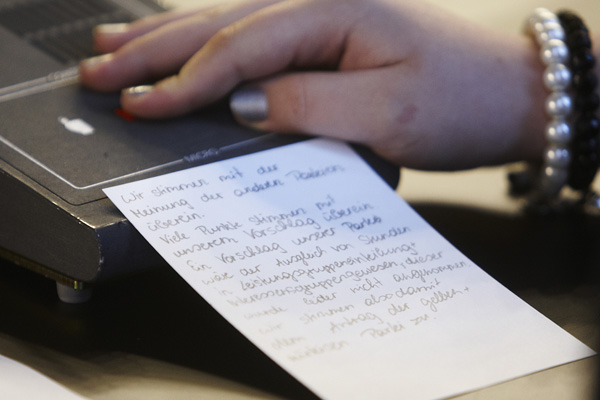 MICRO
Wir stimmen mit der
Meinung der anderen Parteien
überein.
Viele Punkte stimmen mit
unserem Vorschlag überein
Ein Vorschlag unserer Partei
wäre der Ausgleich von Stunden
in Leistungsgruppeneinteilung
Interessensgruppengewesen, dieser
wurde leider nicht aufgenommen
wir stimmen also damit
dem Antrag der gelben +
Partei zu.